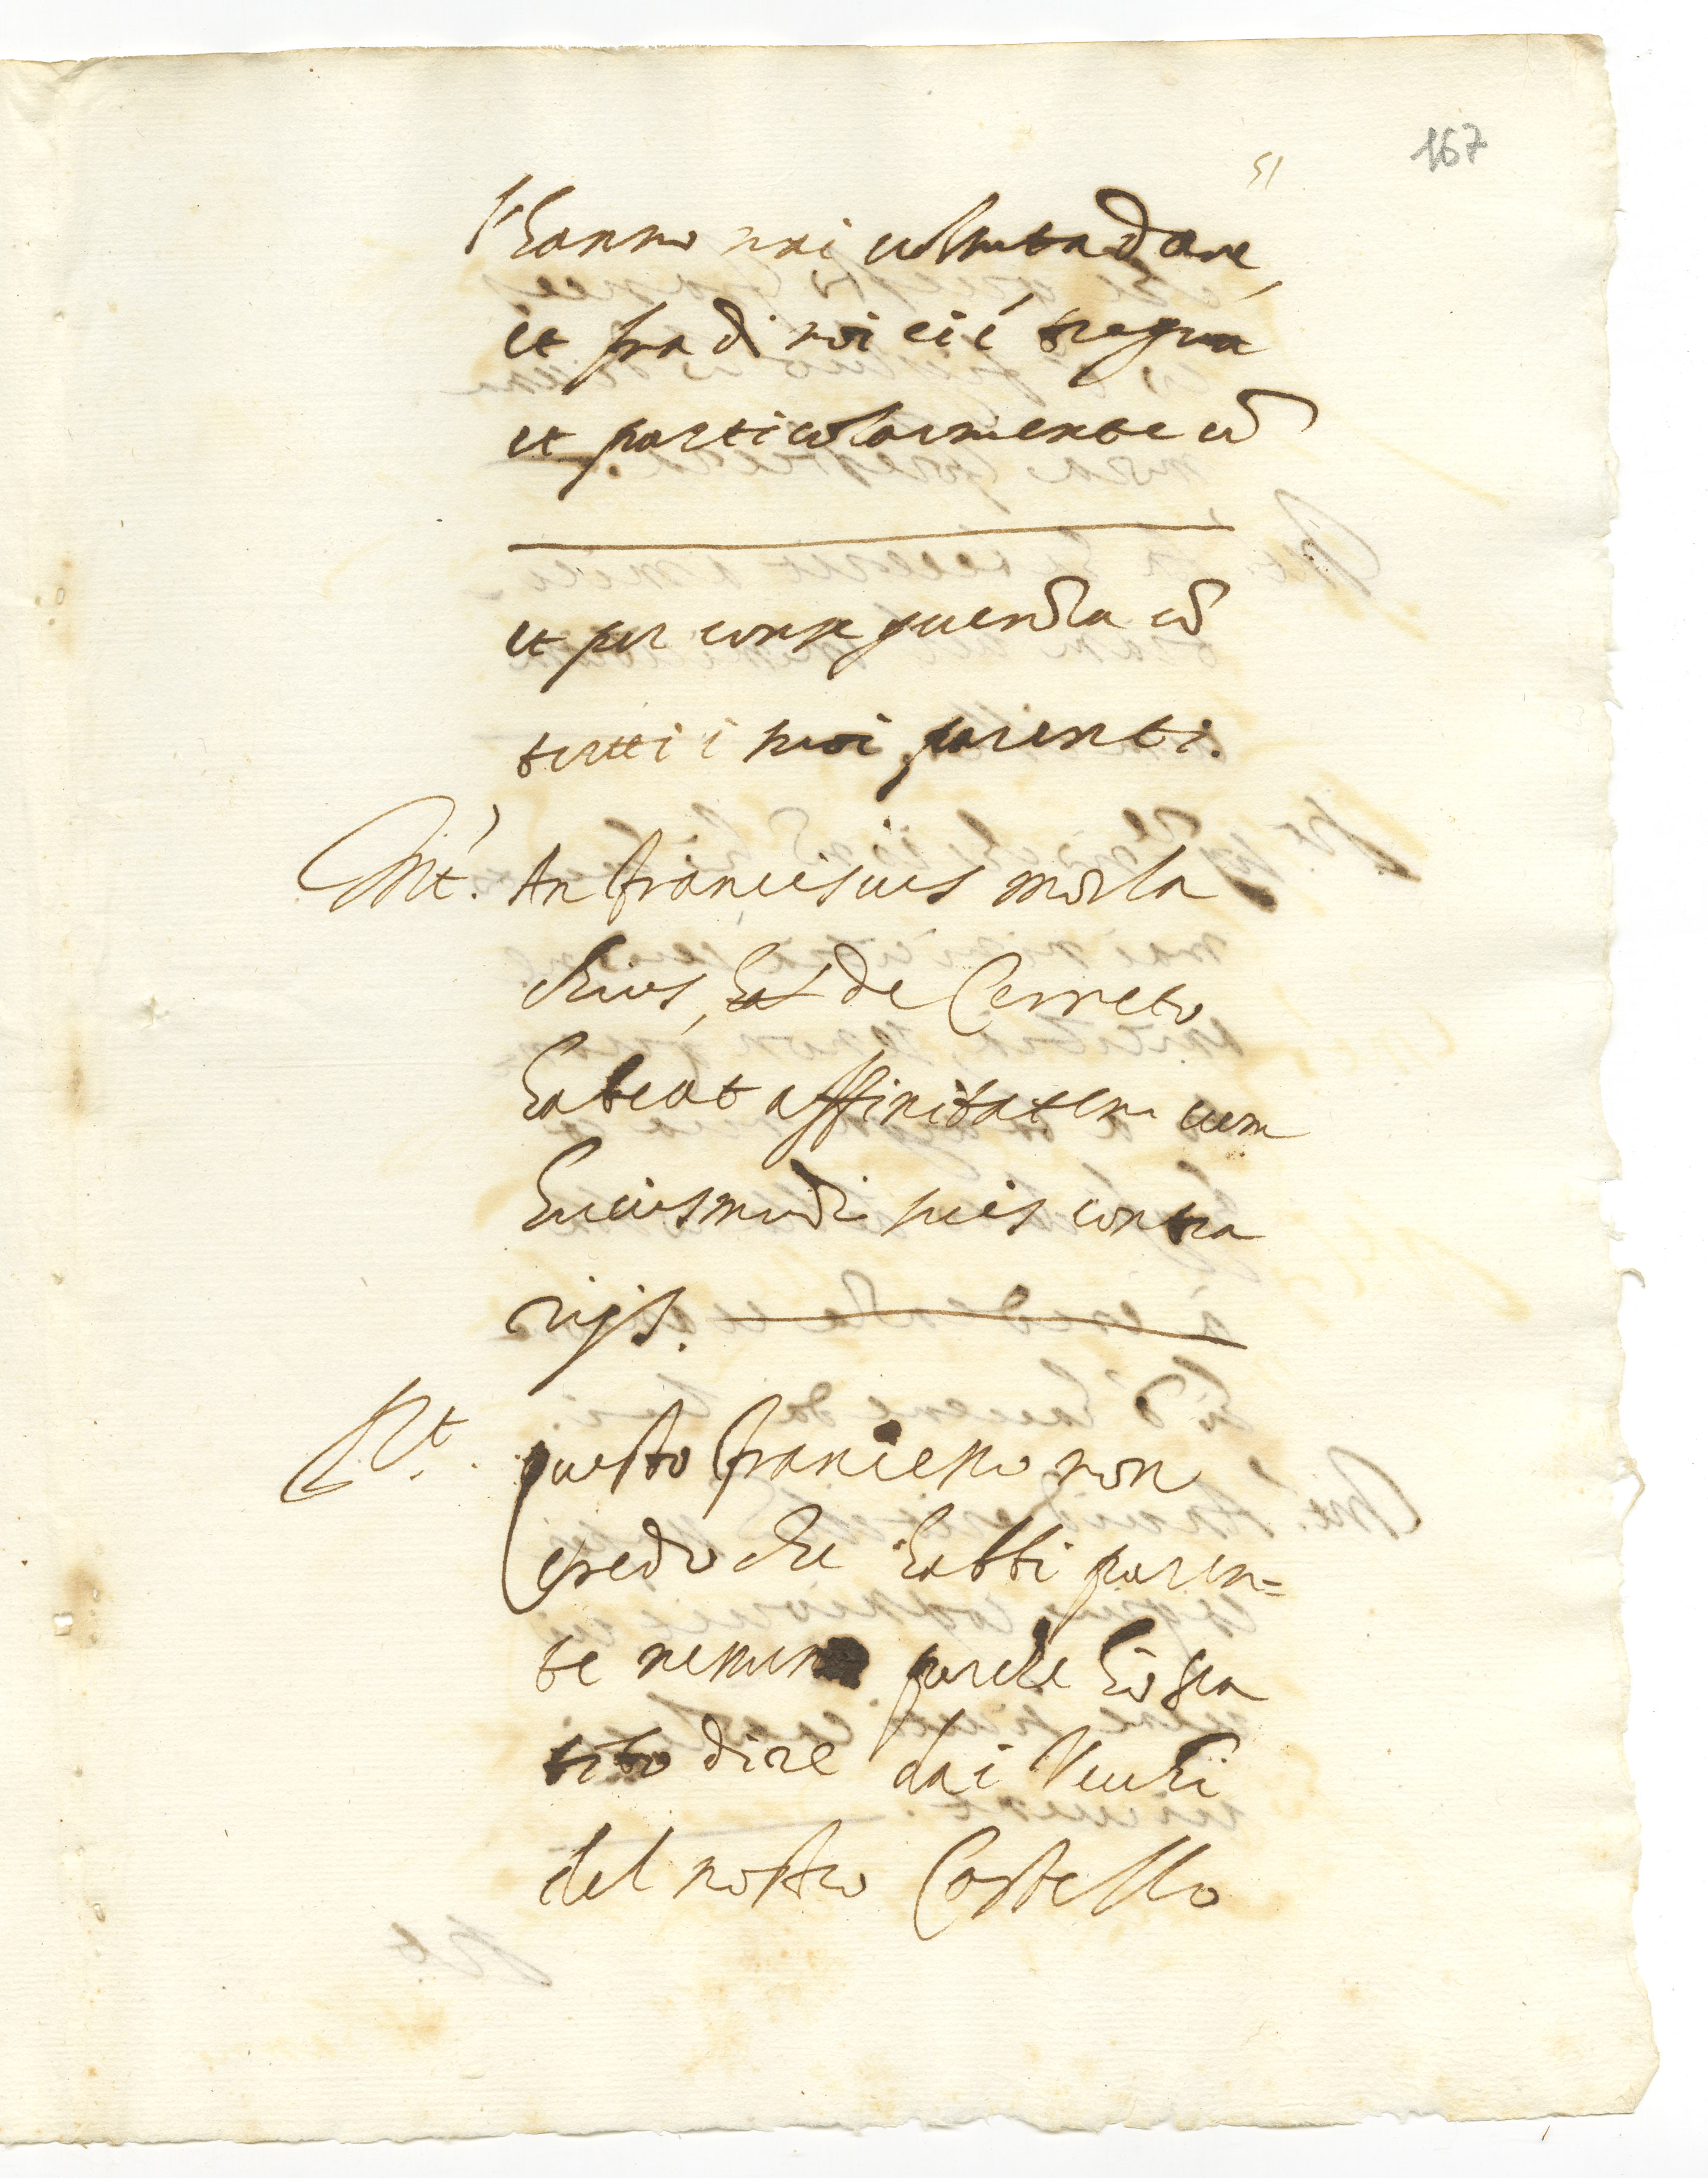 167
51
l'hanno mai voluta dare,
et fra di noi ci é tregua
et particolarmente cō
et per conseguenza cō
tutti i suoi parenti.
Int.' An Franciscus morla
chius, hat de Cerreto
habeat affinitatem cum
huiusmodi suis contra
rijs.
Rt. questo Francesco non
credo che habbi paren=
te nessuno perche hò sen
tito dire dai Vecchi
del nostro Castello